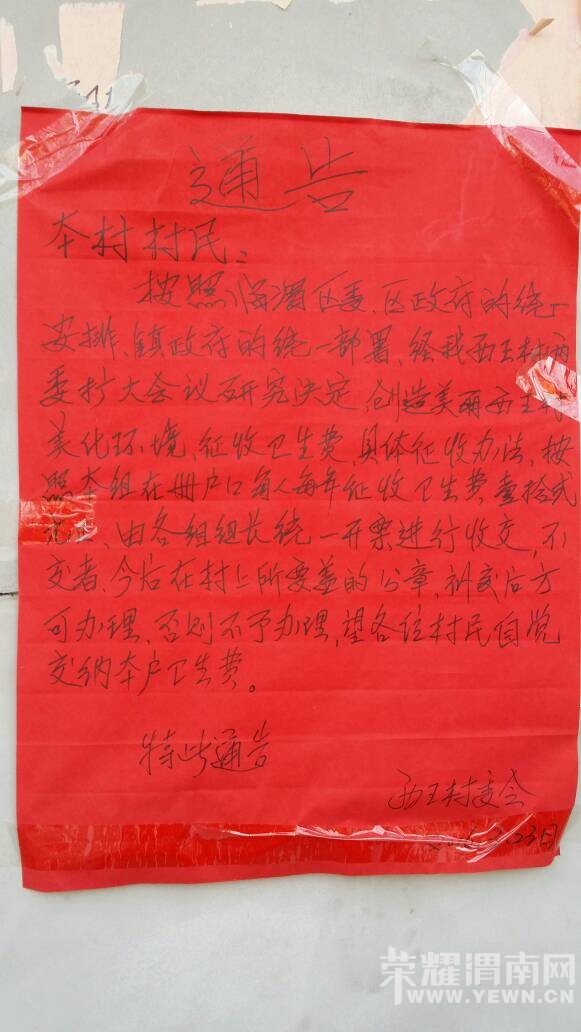 通告
本村村民:
按照临渭区委、区政府的统一
安排、镇政府的统一部署、经我西王村两
委扩大会议研究决定、创造美丽西王村
美化环境、征收卫生费、具体征收办法、按
照本组在册户口每人每年征收卫生费壹拾贰
元、由各组组长统一开票进行收交,不
交者、今后在村上所要盖的公章,补交后方
可办理、否则不予办理,望各位村民自觉
交纳本户卫生费。
特此通告
西王村委会
23日
荣耀渭南网
WWW.YEWN.CN